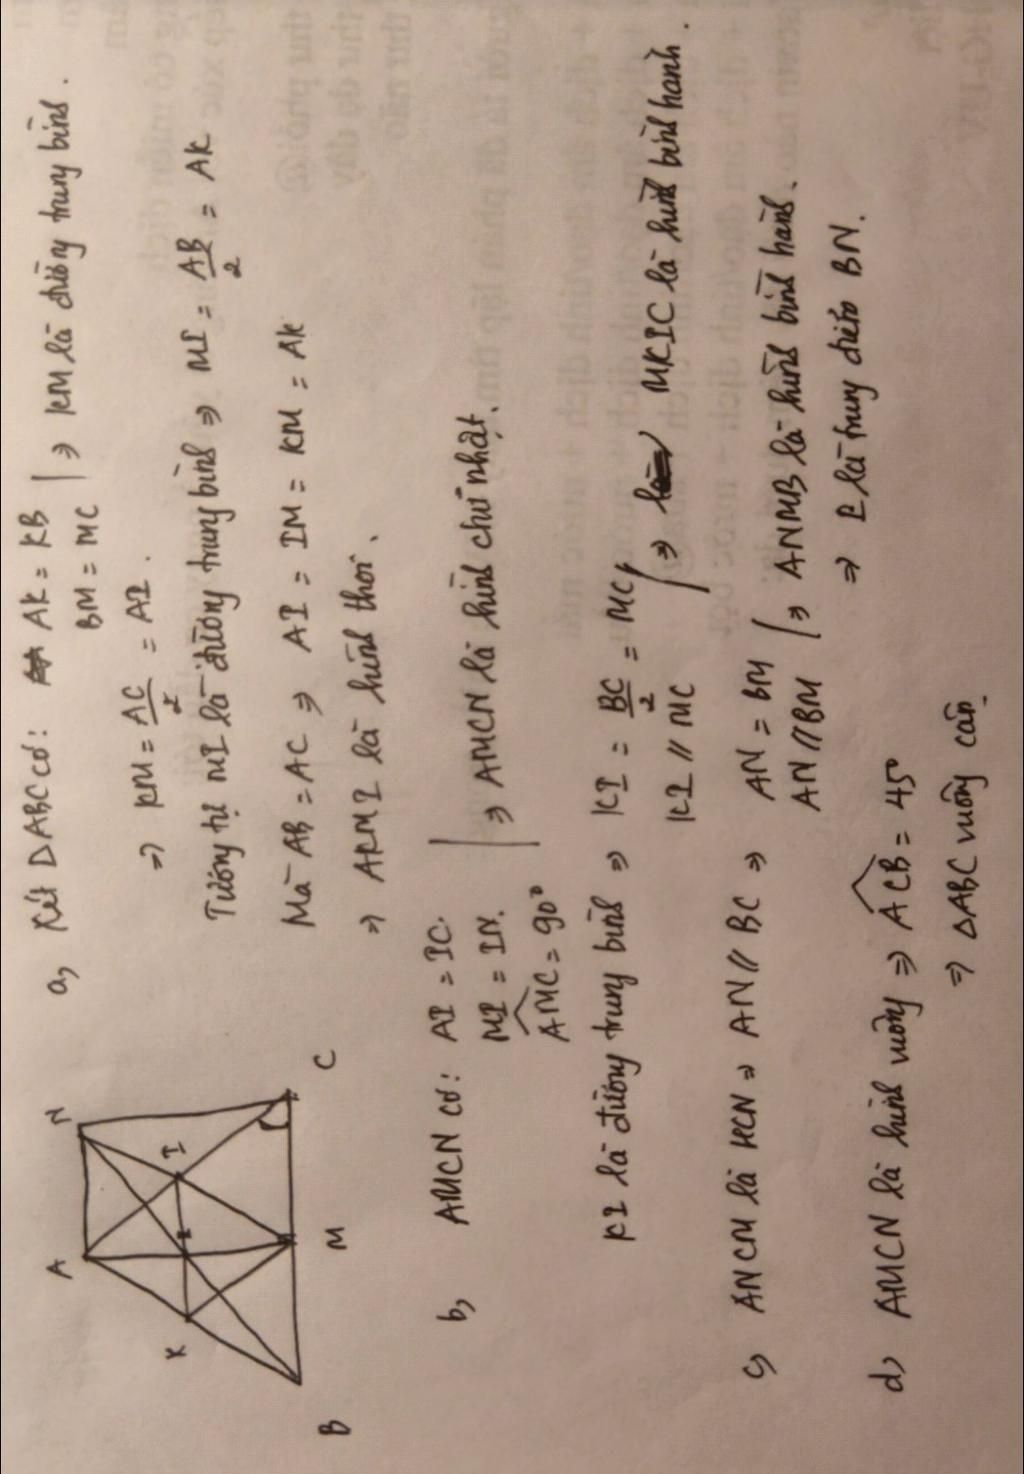 A
N
K
E
I
B
M
C
a, Xét ΔABC có: AK = KB
BM = MC
⇒ KM là đường trung bình.
⇒ KM = AC/2 = AI.
Tương tự MI là đường trung bình ⇒ MI = AB/2 = AK
Mà AB = AC ⇒ AI = IM = KM = AK
⇒ AKMI là hình thoi.
b, AMCN có: AI = IC.
MI = IN.
AMC = 90°
⇒ AMCN là hình chữ nhật.
KI là đường trung bình ⇒ KI = BC/2 = MC
KI // MC
⇒ MKIC là hình bình hành.
c, ANCM là HCN ⇒ AN // BC ⇒ AN = BM
AN // BM
⇒ ANMB là hình bình hành.
⇒ E là trung điểm BN.
d, AMCN là hình vuông ⇒ ACB = 45°
⇒ ΔABC vuông cân.